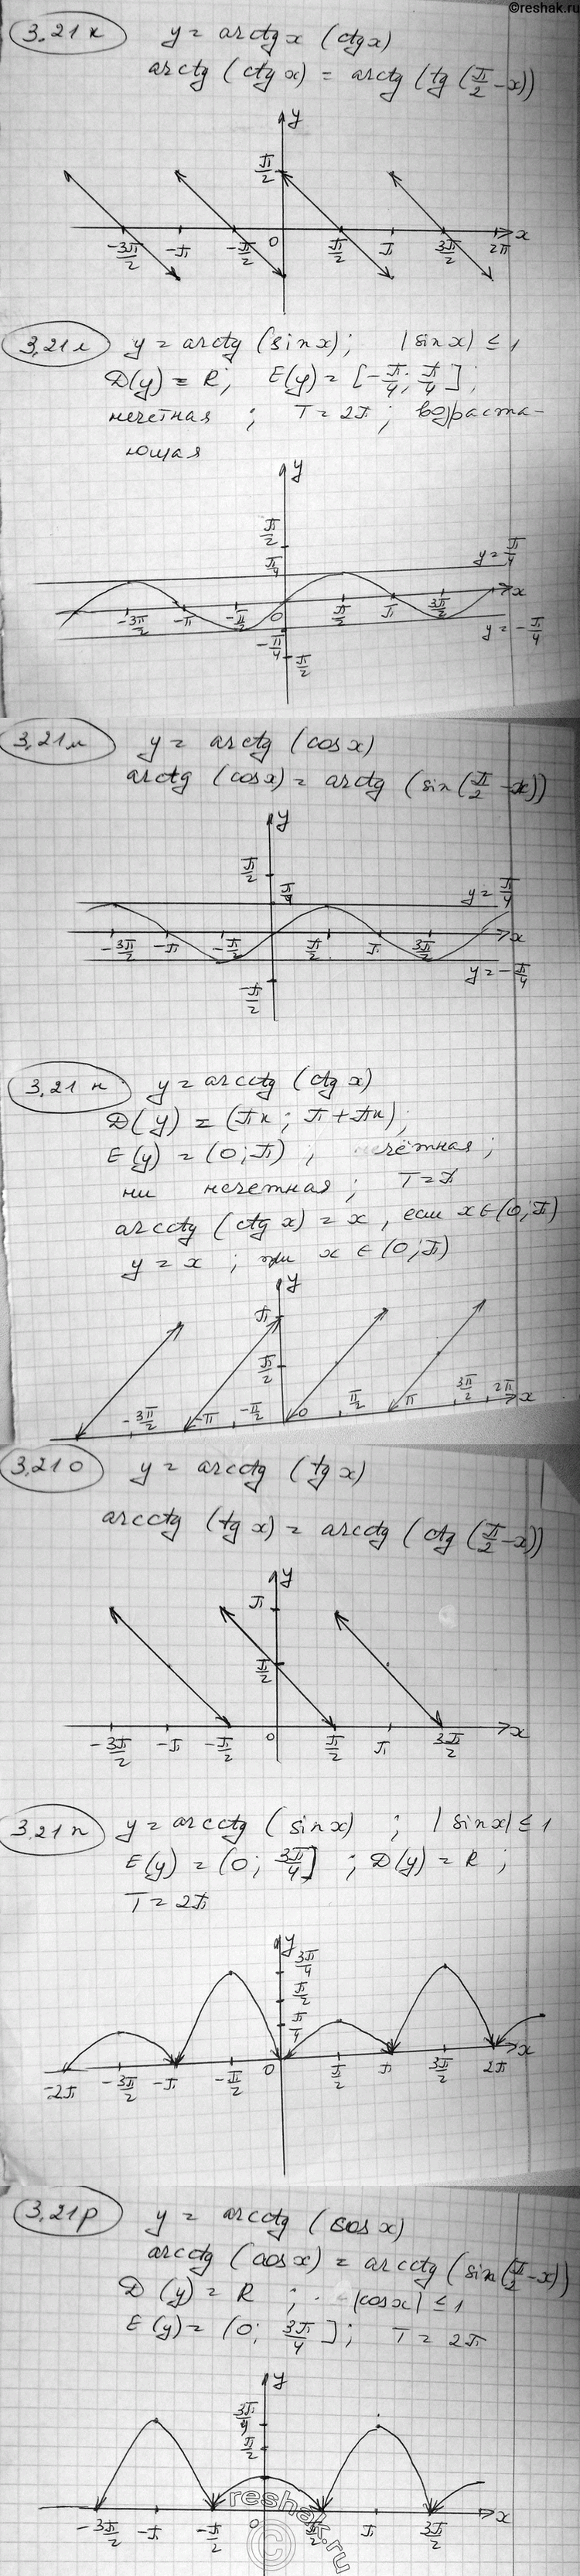 ©reshak.ru
3.21 к y = arctg x (ctg x)
arctg (ctg x) = arctg (tg (π/2 − x))
y
π/2
−3π/2 −π −π/2 0 π/2 π 3π/2 2π x
3.21 л y = arctg (sin x); |sin x| ≤ 1
D(y) = R; E(y) = [−π/4; π/4];
нечетная; T = 2π; возраста-
ющая
y
π/2
π/4 y = π/4
−3π/2 −π −π/2 0 π/2 π 3π/2 x
−π/4 y = −π/4
π/2
3.21 м y = arctg (cos x)
arctg (cos x) = arctg (sin (π/2 − x))
y
π/2
π/4 y = π/4
−3π/2 −π −π/2 π/2 π 3π/2 x
y = −π/4
−π/2
3.21 н y = arcctg (ctg x)
D(y) = (πк; π + πк);
E(y) = (0; π); чётная;
ни нечетная; T = π
arcctg (ctg x) = x, если x ∈ (0; π)
y = x; при x ∈ (0; π)
y
π
π/2
−3π/2 −π −π/2 0 π/2 π 3π/2 2π x
3.21 о y = arcctg (tg x)
arcctg (tg x) = arcctg (ctg (π/2 − x))
y
π
π/2
−3π/2 −π −π/2 0 π/2 π 3π/2 x
3.21 п y = arcctg (sin x); |sin x| ≤ 1
E(y) = (0; 3π/4]; D(y) = R;
T = 2π
y
3π/4
π/2
π/4
−2π −3π/2 −π −π/2 0 π/2 π 3π/2 2π x
3.21 р y = arcctg (cos x)
arcctg (cos x) = arcctg (sin (π/2 − x))
D(y) = R; |cos x| ≤ 1
E(y) = (0; 3π/4]; T = 2π
y
3π/4
π/2
−3π/2 −π −π/2 0 π/2 π 3π/2 x
reshak.ru
©